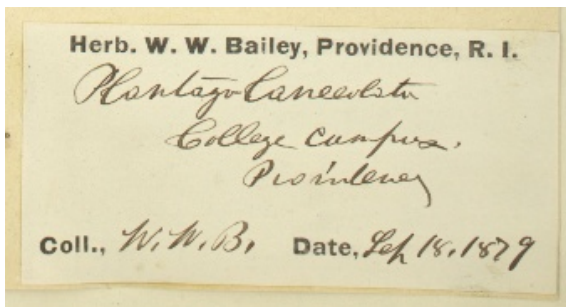 Herb. W. W. Bailey, Providence, R. I.
Plantago Lanceolata
College Campus.
Providence
Coll., W. W. B. Date, Sep 18. 1879